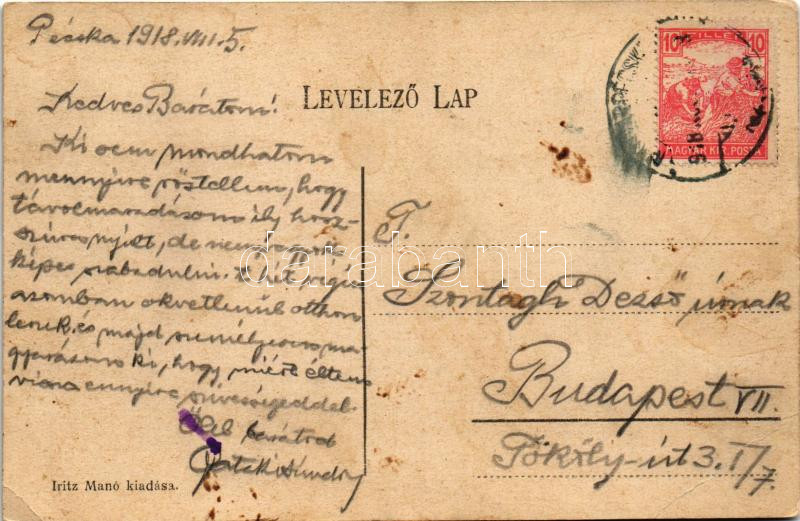 Pécska 1918. VIII. 5.
Kedves Barátom!
Ki sem mondhatom
mennyire röstellem, hogy
távolmaradásom ily hosz-
szúra nyílt, de nem vagyok
képes szabadulni. A hét végén
azonban okvetlenül otthon
leszek és majd személyesen ma-
gyarázom ki, hogy miért éltem
vissza ennyire szívességeddel.
Ölel barátod
Iritz Manó kiadása.
LEVELEZŐ LAP
10 FILLÉR 10
MAGYAR KIR. POSTA
T.
Szontagh Dezső úrnak
Budapest VII.
Tököly-út 3. I/7.
darabanth